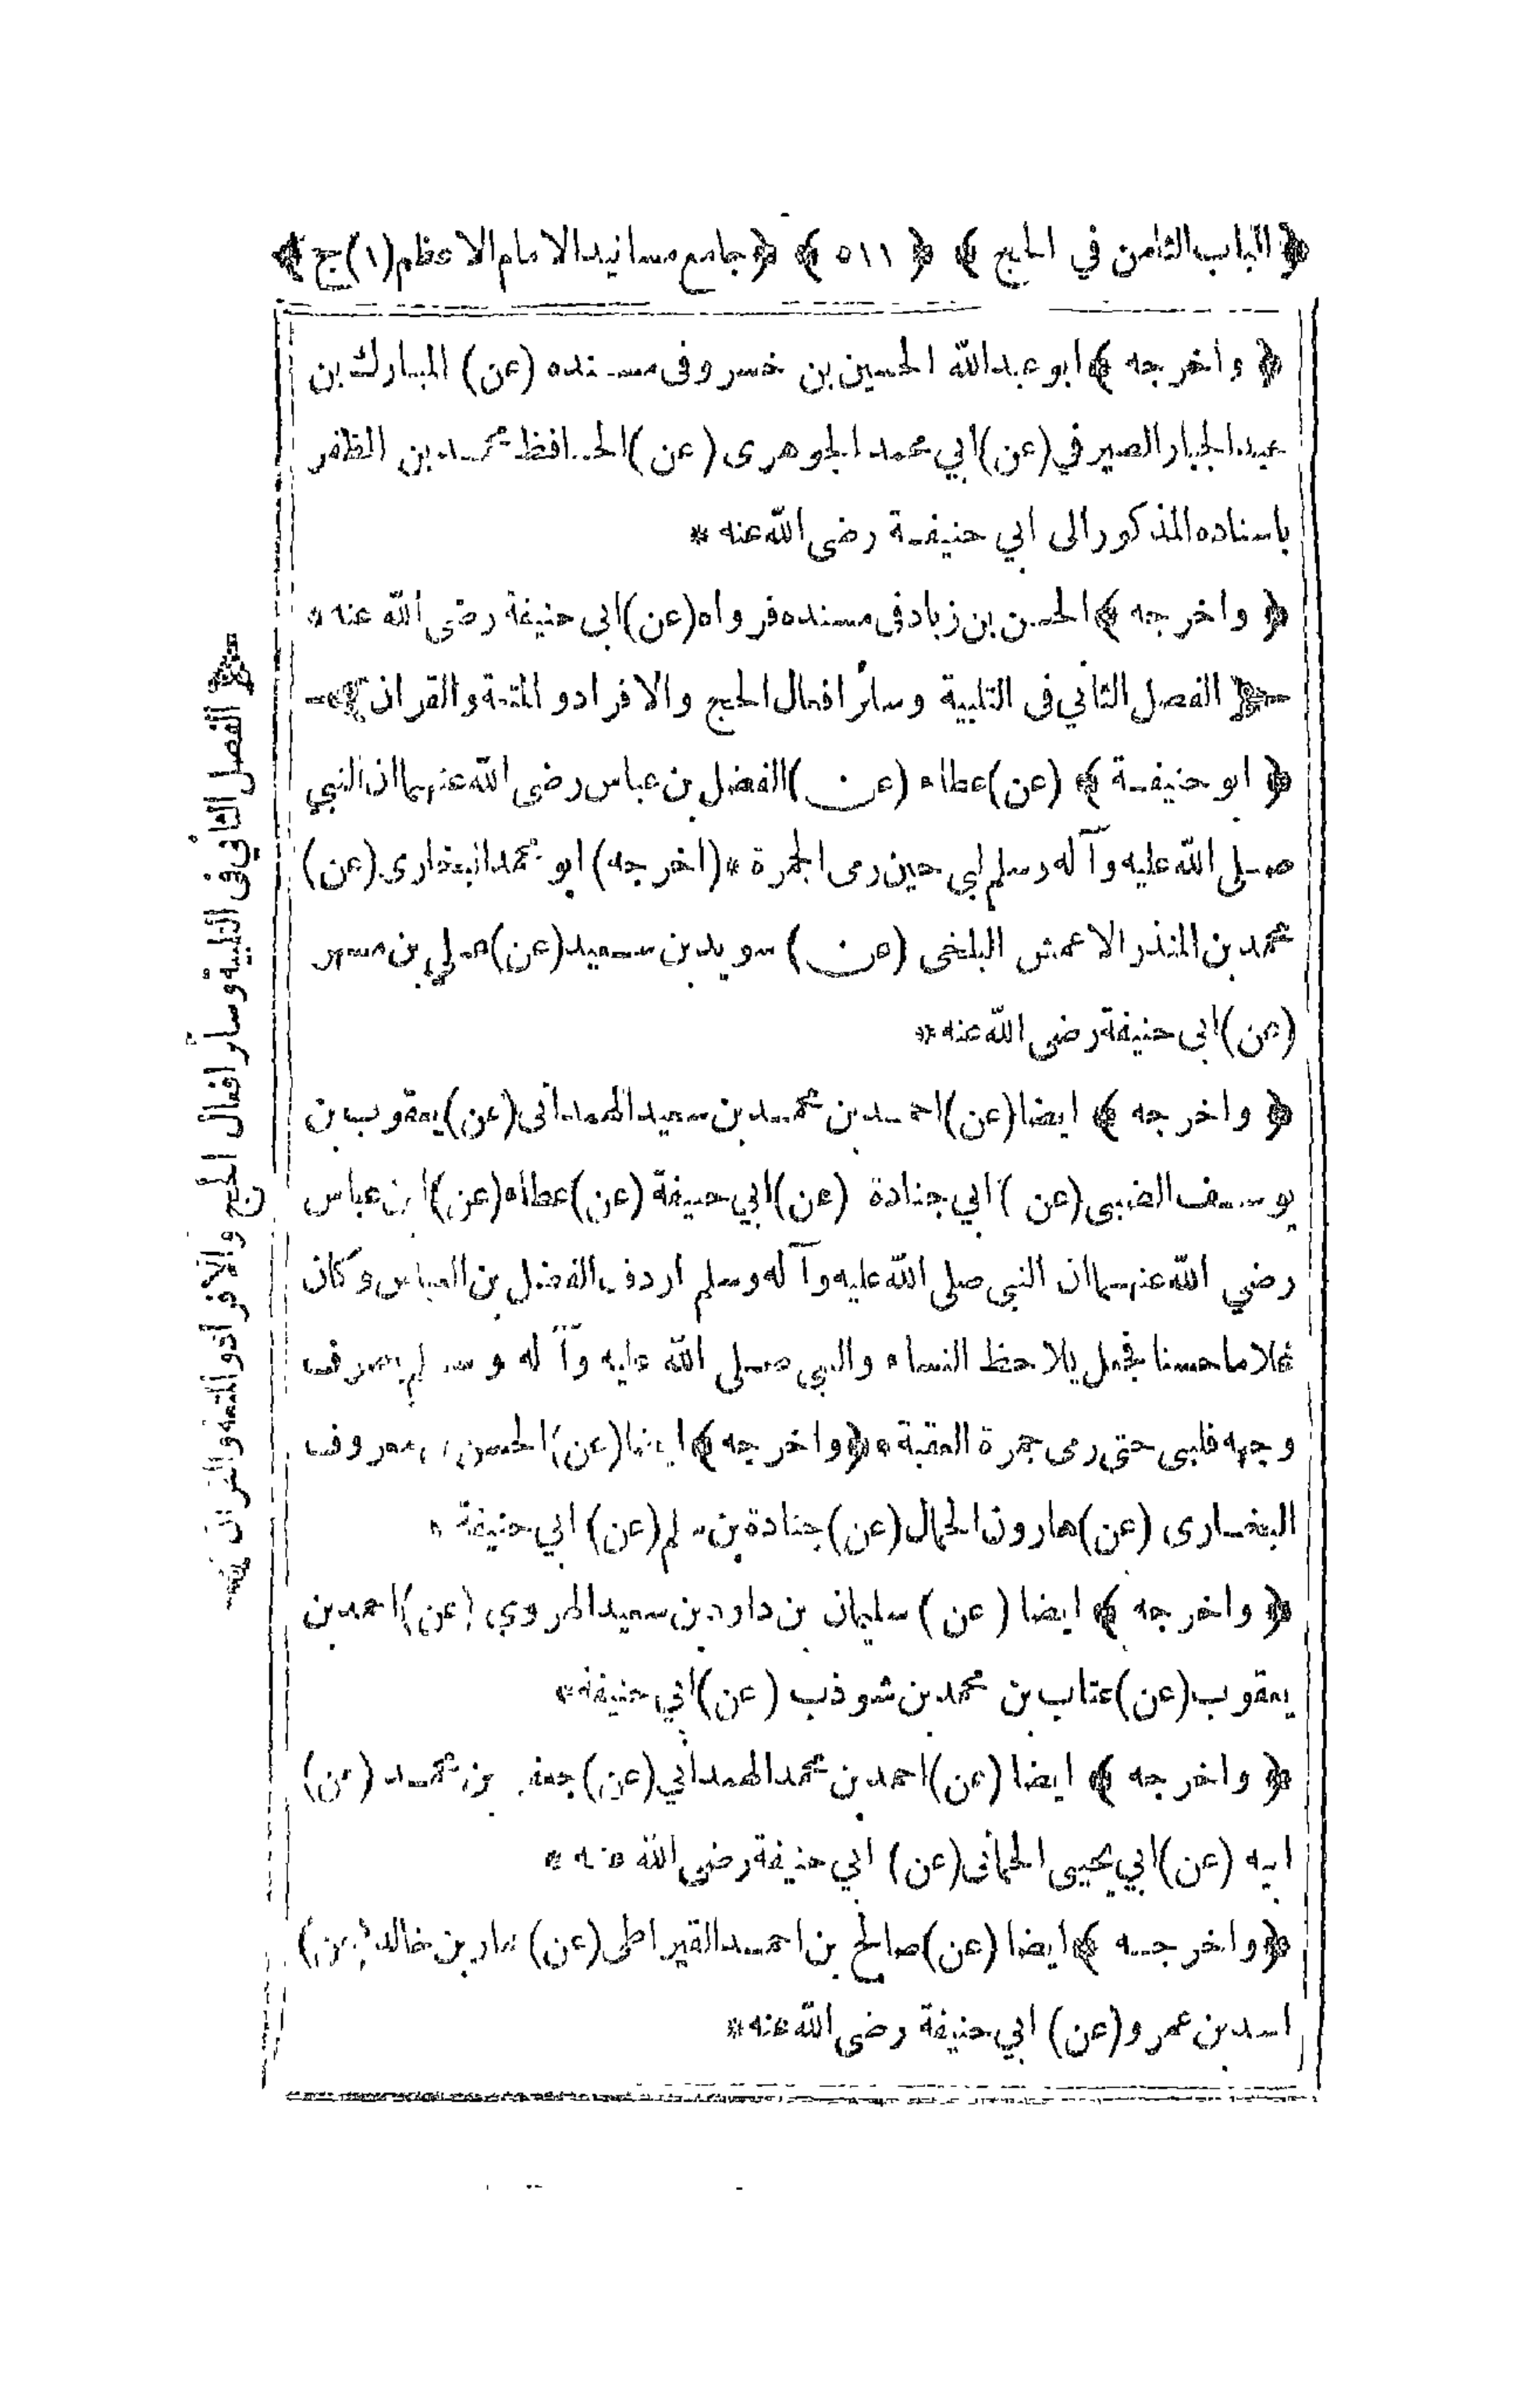 ﴿ الباب الثامن في الحج ﴾ ﴿ ٥١١ ﴾ ﴿ جامع مسانيد الامام الاعظم (١) ج ﴾
﴿ واخرجه ﴾ ابو عبد الله الحسين بن خسرو فى مسنده (عن) المبارك بن
عبد الجبار الصيرفي (عن) ابي محمد الجوهرى (عن) الحافظ محمد بن المظفر
باسناده المذكور الى ابي حنيفة رضى الله عنه *
﴿ واخرجه ﴾ الحسن بن زياد فى مسنده فرواه (عن) ابى حنيفة رضى الله عنه *
الفصل الثاني فى التلبية وسائر افعال الحج والافراد والمتعة والقران
﴿ ابو حنيفة ﴾ (عن) عطاء (عن) الفضل بن عباس رضى الله عنهما ان النبي
صلى الله عليه وآله وسلم لبى حين رمى الجمرة * (اخرجه) ابو محمد البخارى (عن)
محمد بن المنذر الاعمش البلخى (عن) سويد بن سعيد (عن) علي بن مسهر
(عن) ابى حنيفة رضى الله عنه *
﴿ واخرجه ﴾ ايضا (عن) احمد بن محمد بن سعيد الهمدانى (عن) يعقوب بن
يوسف الضبى (عن) ابي جنادة (عن) ابي حنيفة (عن) عطاء (عن) ابن عباس
رضي الله عنهما ان النبى صلى الله عليه وآله وسلم اردف الفضل بن العباس وكان
غلاما حسنا فجعل يلاحظ النساء والنبى صلى الله عليه وآله وسلم يصرف
وجهه فلبى حتى رمى جمرة العقبة * ﴿ واخرجه ﴾ ايضا (عن) الحسن بن معروف
البخارى (عن) هارون الحمال (عن) جنادة بن سلم (عن) ابي حنيفة *
﴿ واخرجه ﴾ ايضا (عن) سليمان بن داود بن سعيد الهروي (عن) احمد بن
يعقوب (عن) عتاب بن محمد بن شوذب (عن) ابي حنيفة *
﴿ واخرجه ﴾ ايضا (عن) احمد بن محمد الهمداني (عن) جعفر بن محمد (عن)
ابيه (عن) ابي يحيى الحمانى (عن) ابي حنيفة رضى الله عنه *
﴿ واخرجه ﴾ ايضا (عن) صالح بن احمد القيراطى (عن) بن خالد (عن)
اسد بن عمرو (عن) ابي حنيفة رضى الله عنه *
الفصل الثاني فى التلبية وسائر افعال الحج والافراد والمتعة والقران